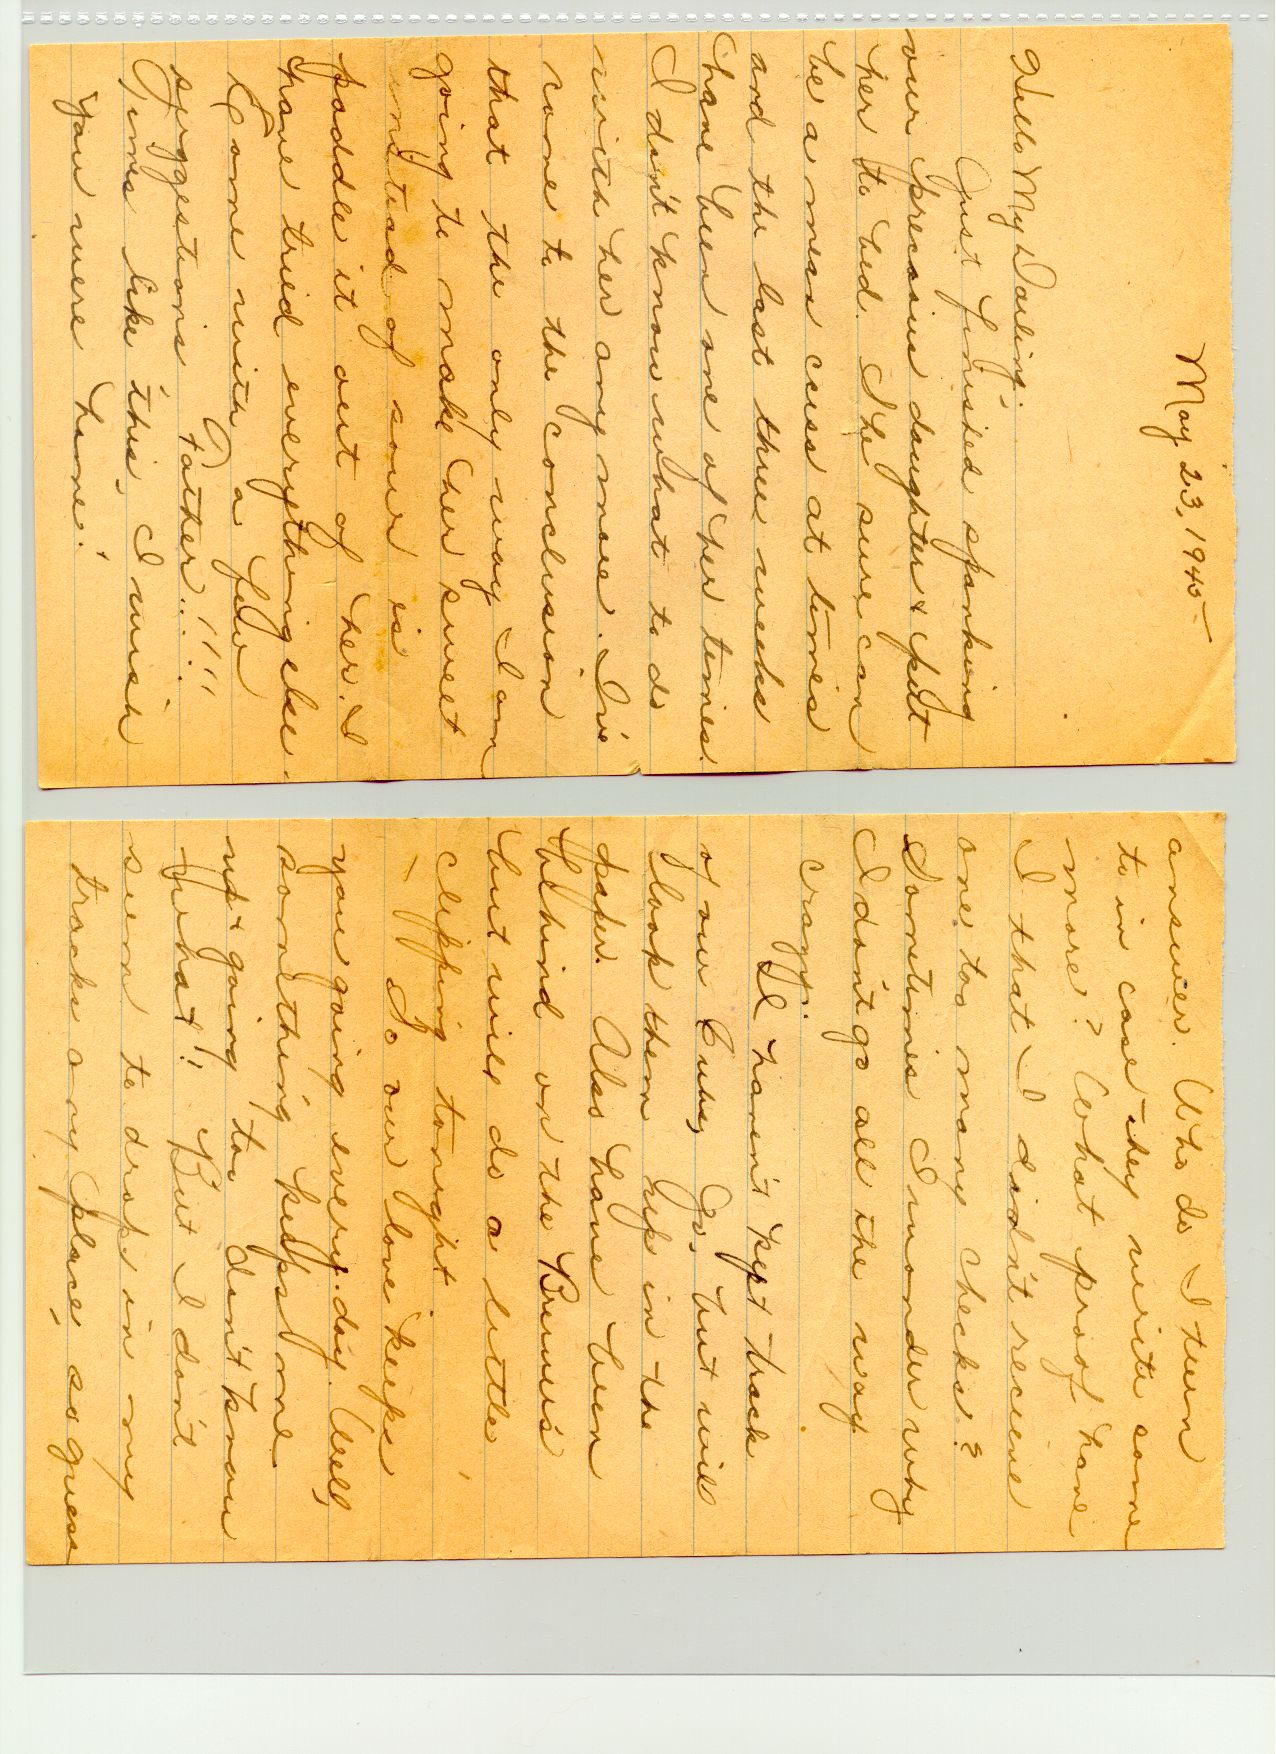 May 23, 1945
Hello My Darling;
Just finished spanking
your precious daughter & put
her to bed. She sure can
be a mean cuss at times
and the last three weeks
have been one of her times.
I don't know what to do
with her any more. I've
come to the conclusion
that the only way I am
going to make her sweet
instead of sour is
paddle it out of her. I
have tried everything else.
Come with a few
suggestions Father...!!!!
Times like this, I wish
you were home!
answer. Who do I turn
to in case they write some
more? What proof have
I that I didn't receive
one too many checks?
Sometimes I wonder why
I don't go all the way
crazy.
I haven't kept track
of our Cubs, Jo, but will
look them up in the
paper. Also have been
behind on the Brewers
but will do a little
clipping tonight.
So our love keeps
you going every day. Well,
something keeps me
up & going too don't know
what!! But I don't
seem to drop in my
tracks any place, so guess